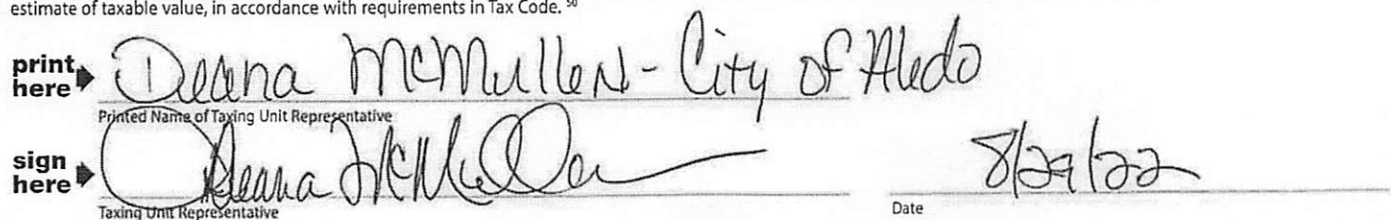 estimate of taxable value, in accordance with requirements in Tax Code. 50
print here Deana McMullen - City of Aledo
Printed Name of Taxing Unit Representative
sign here Deana McMullen 8/29/22
Taxing Unit Representative Date